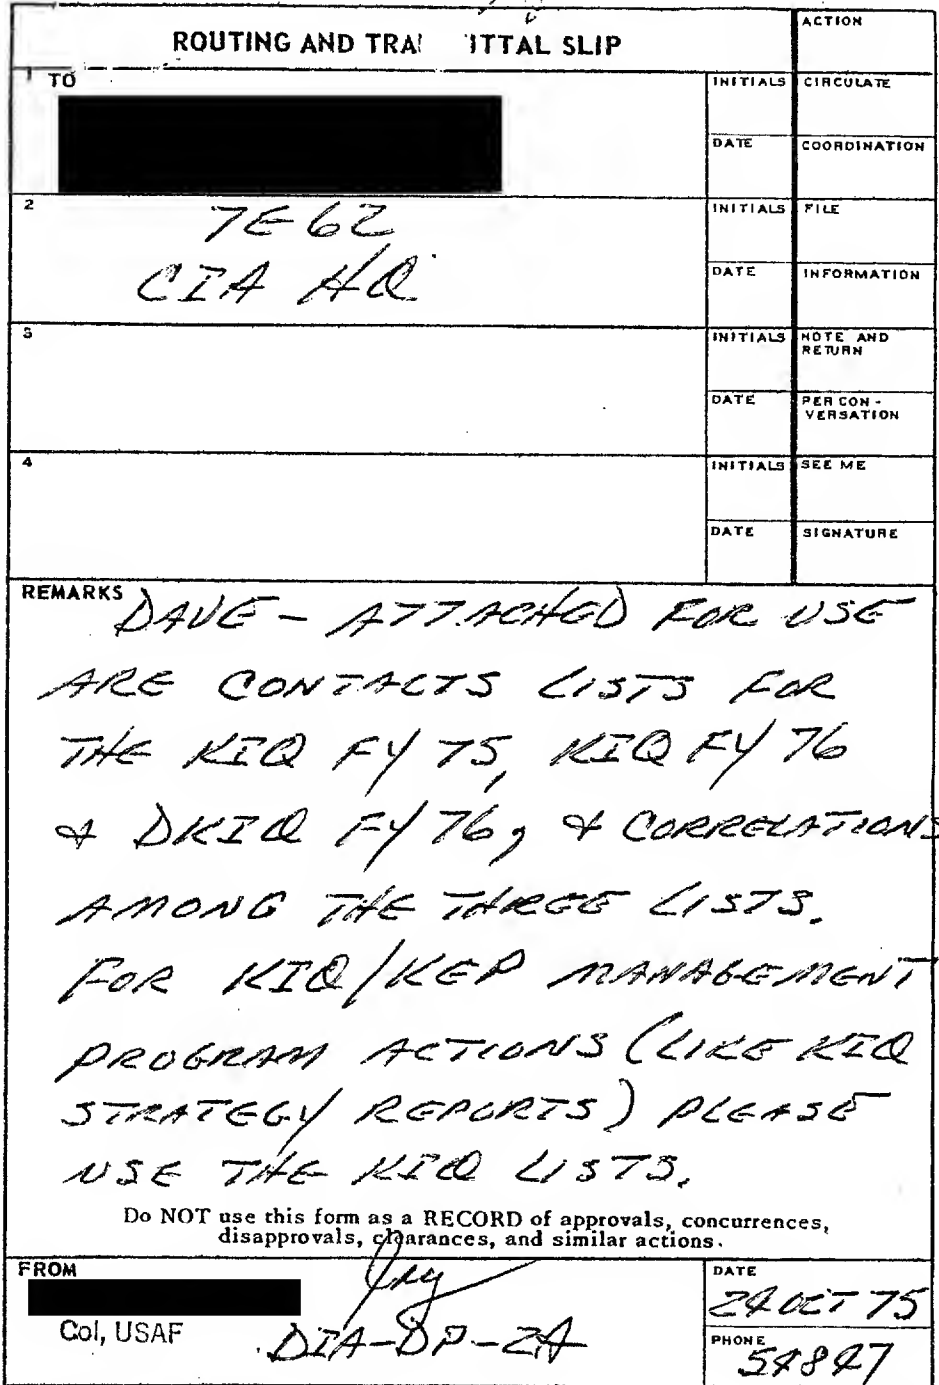 ROUTING AND TRA ITTAL SLIP
ACTION
1 TO
INITIALS CIRCULATE
DATE COORDINATION
2 7E62
CIA HQ
INITIALS FILE
DATE INFORMATION
3
INITIALS NOTE AND RETURN
DATE PER CON-VERSATION
4
INITIALS SEE ME
DATE SIGNATURE
REMARKS
DAVE - ATTACHED FOR USE
ARE CONTACTS LISTS FOR
THE KIQ FY 75, KIQ FY 76
& DKIQ FY 76, & CORRELATIONS
AMONG THE THREE LISTS.
FOR KIQ/KEP MANAGEMENT
PROGRAM ACTIONS (LIKE KIQ
STRATEGY REPORTS) PLEASE
USE THE KIQ LISTS.
Do NOT use this form as a RECORD of approvals, concurrences,
disapprovals, clearances, and similar actions.
FROM
Col, USAF
DIA-DP-2A
DATE
24 OCT 75
PHONE
54847